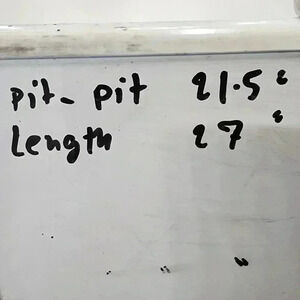 pit- pit 21.5 "
Length 27 "